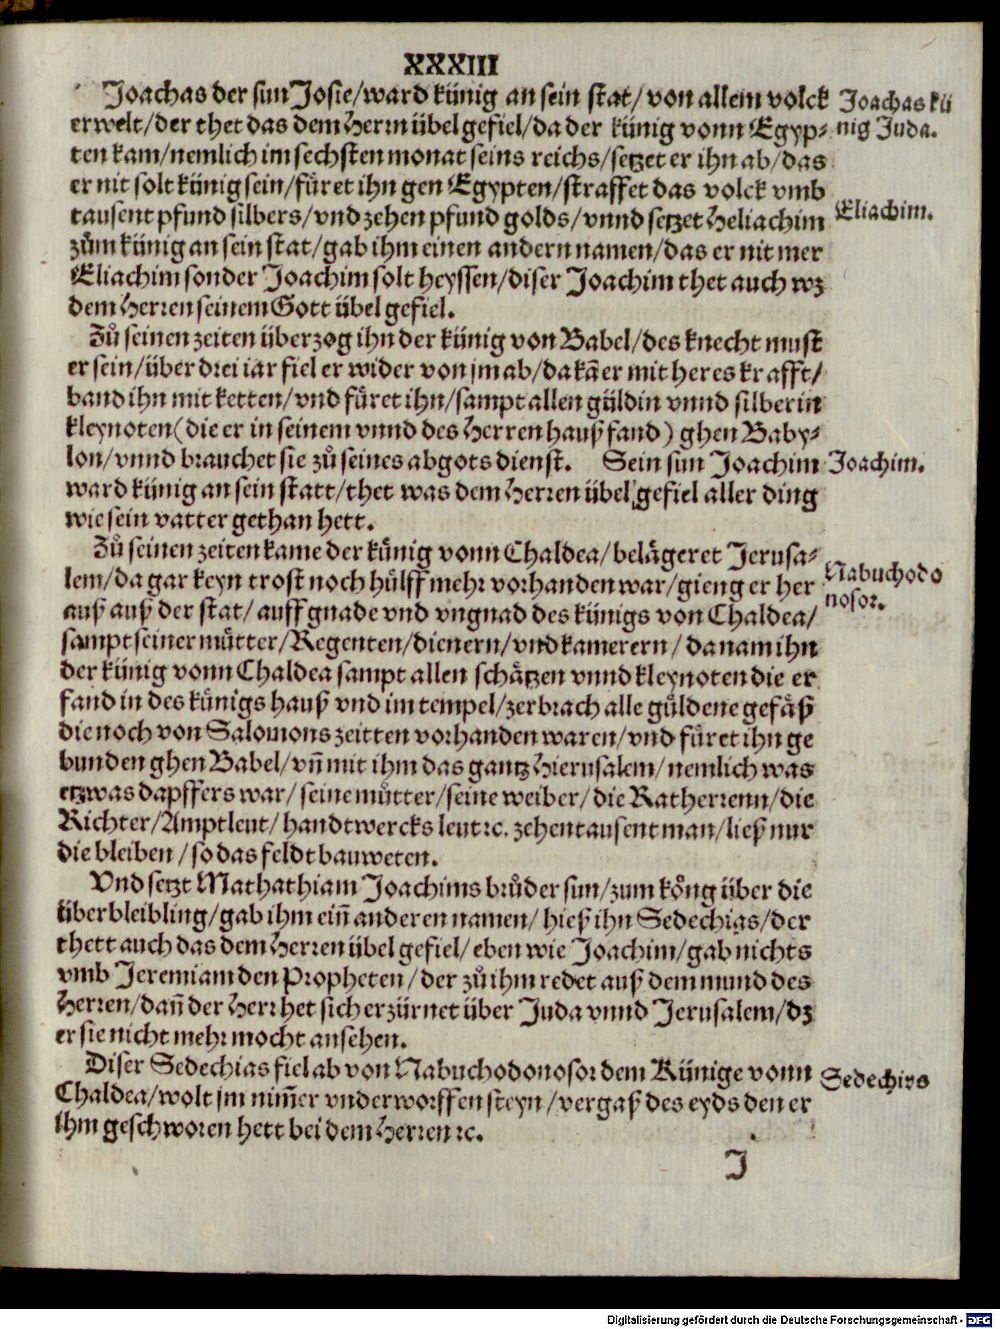 XXXIII
Joachas der sun Josie/ward künig an sein stat/von allem volck
erwelt/der thet das dem Herrn übel gefiel/da der künig vonn Egyp-
ten kam/nemlich im sechsten monat seins reichs/setzet er ihn ab/das
er nit solt künig sein/füret ihn gen Egypten/straffet das volck vmb
tausent pfund silbers/vnd zehen pfund golds/vnnd setzet Heliachim
zům künig an sein stat/gab ihm einen andern namen/das er nit mer
Eliachim sonder Joachim solt heyssen/diser Joachim thet auch wz
dem Herren seinem Gott übel gefiel.
Zů seinen zeiten überzog ihn der künig von Babel/des knecht must
er sein/über drei iar fiel er wider von jm ab/da kā er mit heres krafft/
band ihn mit ketten/vnd füret ihn/sampt allen güldin vnnd silberin
kleynoten (die er in seinem vnnd des Herren hauß fand) ghen Baby-
lon/vnnd brauchet sie zů seines abgots dienst. Sein sun Joachim
ward künig an sein statt/thet was dem Herren übel gefiel aller ding
wie sein vatter gethan hett.
Zů seinen zeiten kame der künig vonn Chaldea/belägeret Jerusa-
lem/da gar keyn trost noch hülff mehr vorhanden war/gieng er her
auß auß der stat/auff gnade vnd vngnad des künigs von Chaldea/
sampt seiner mütter/Regenten/dienern/vnd kamerern/da nam ihn
der künig vonn Chaldea sampt allen schätzen vnnd kleynoten die er
fand in des künigs hauß vnd im tempel/zerbrach alle güldene gefäß
die noch von Salomons zeitten vorhanden waren/vnd füret ihn ge
bunden ghen Babel/vñ mit ihm das gantz Hierusalem/nemlich was
etzwas dapffers war/seine mütter/seine weiber/die Ratherrenn/die
Richter/Amptleut/handtwercks leut ꝛc. zehentausent man/ließ nur
die bleiben/so das feldt bauweten.
Vnd setzt Mathathiam Joachims brůder sun/zum köng über die
überbleibling/gab ihm eiñ anderen namen/hieß ihn Sedechias/der
thett auch das dem Herren übel gefiel/eben wie Joachim/gab nichts
vmb Jeremiam den Propheten/der zů ihm redet auß dem mund des
Herren/dañ der Herr het sich erzürnet über Juda vnnd Jerusalem/dz
er sie nicht mehr mocht ansehen.
Diser Sedechias fiel ab von Nabuchodonosor dem Künige vonn
Chaldea/wolt jm nim̄er vnderworffen steyn/vergaß des eyds den er
ihm geschworen hett bei dem Herren ꝛc.
J
Joachas kü
nig Juda.
Eliachim.
Joachim.
Nabuchodo
nosor.
Sedechias
Digitalisierung gefördert durch die Deutsche Forschungsgemeinschaft - DFG